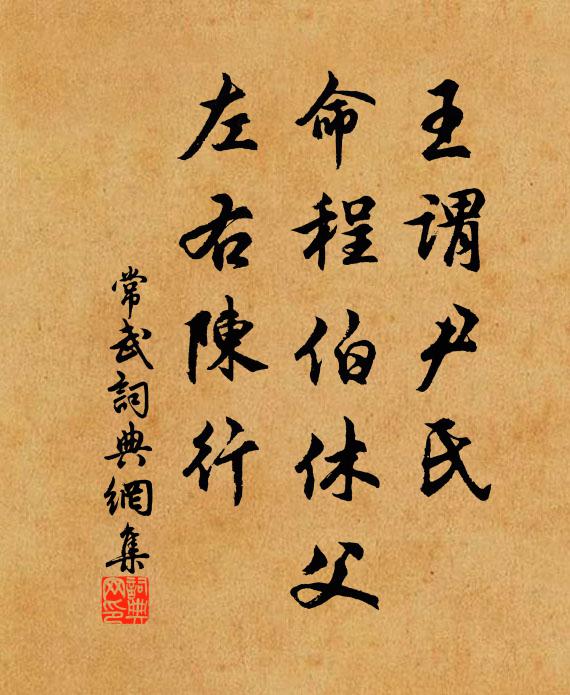 王谓尹氏
命程伯休父
左右陳行
常武詞典網集
詞典
网印